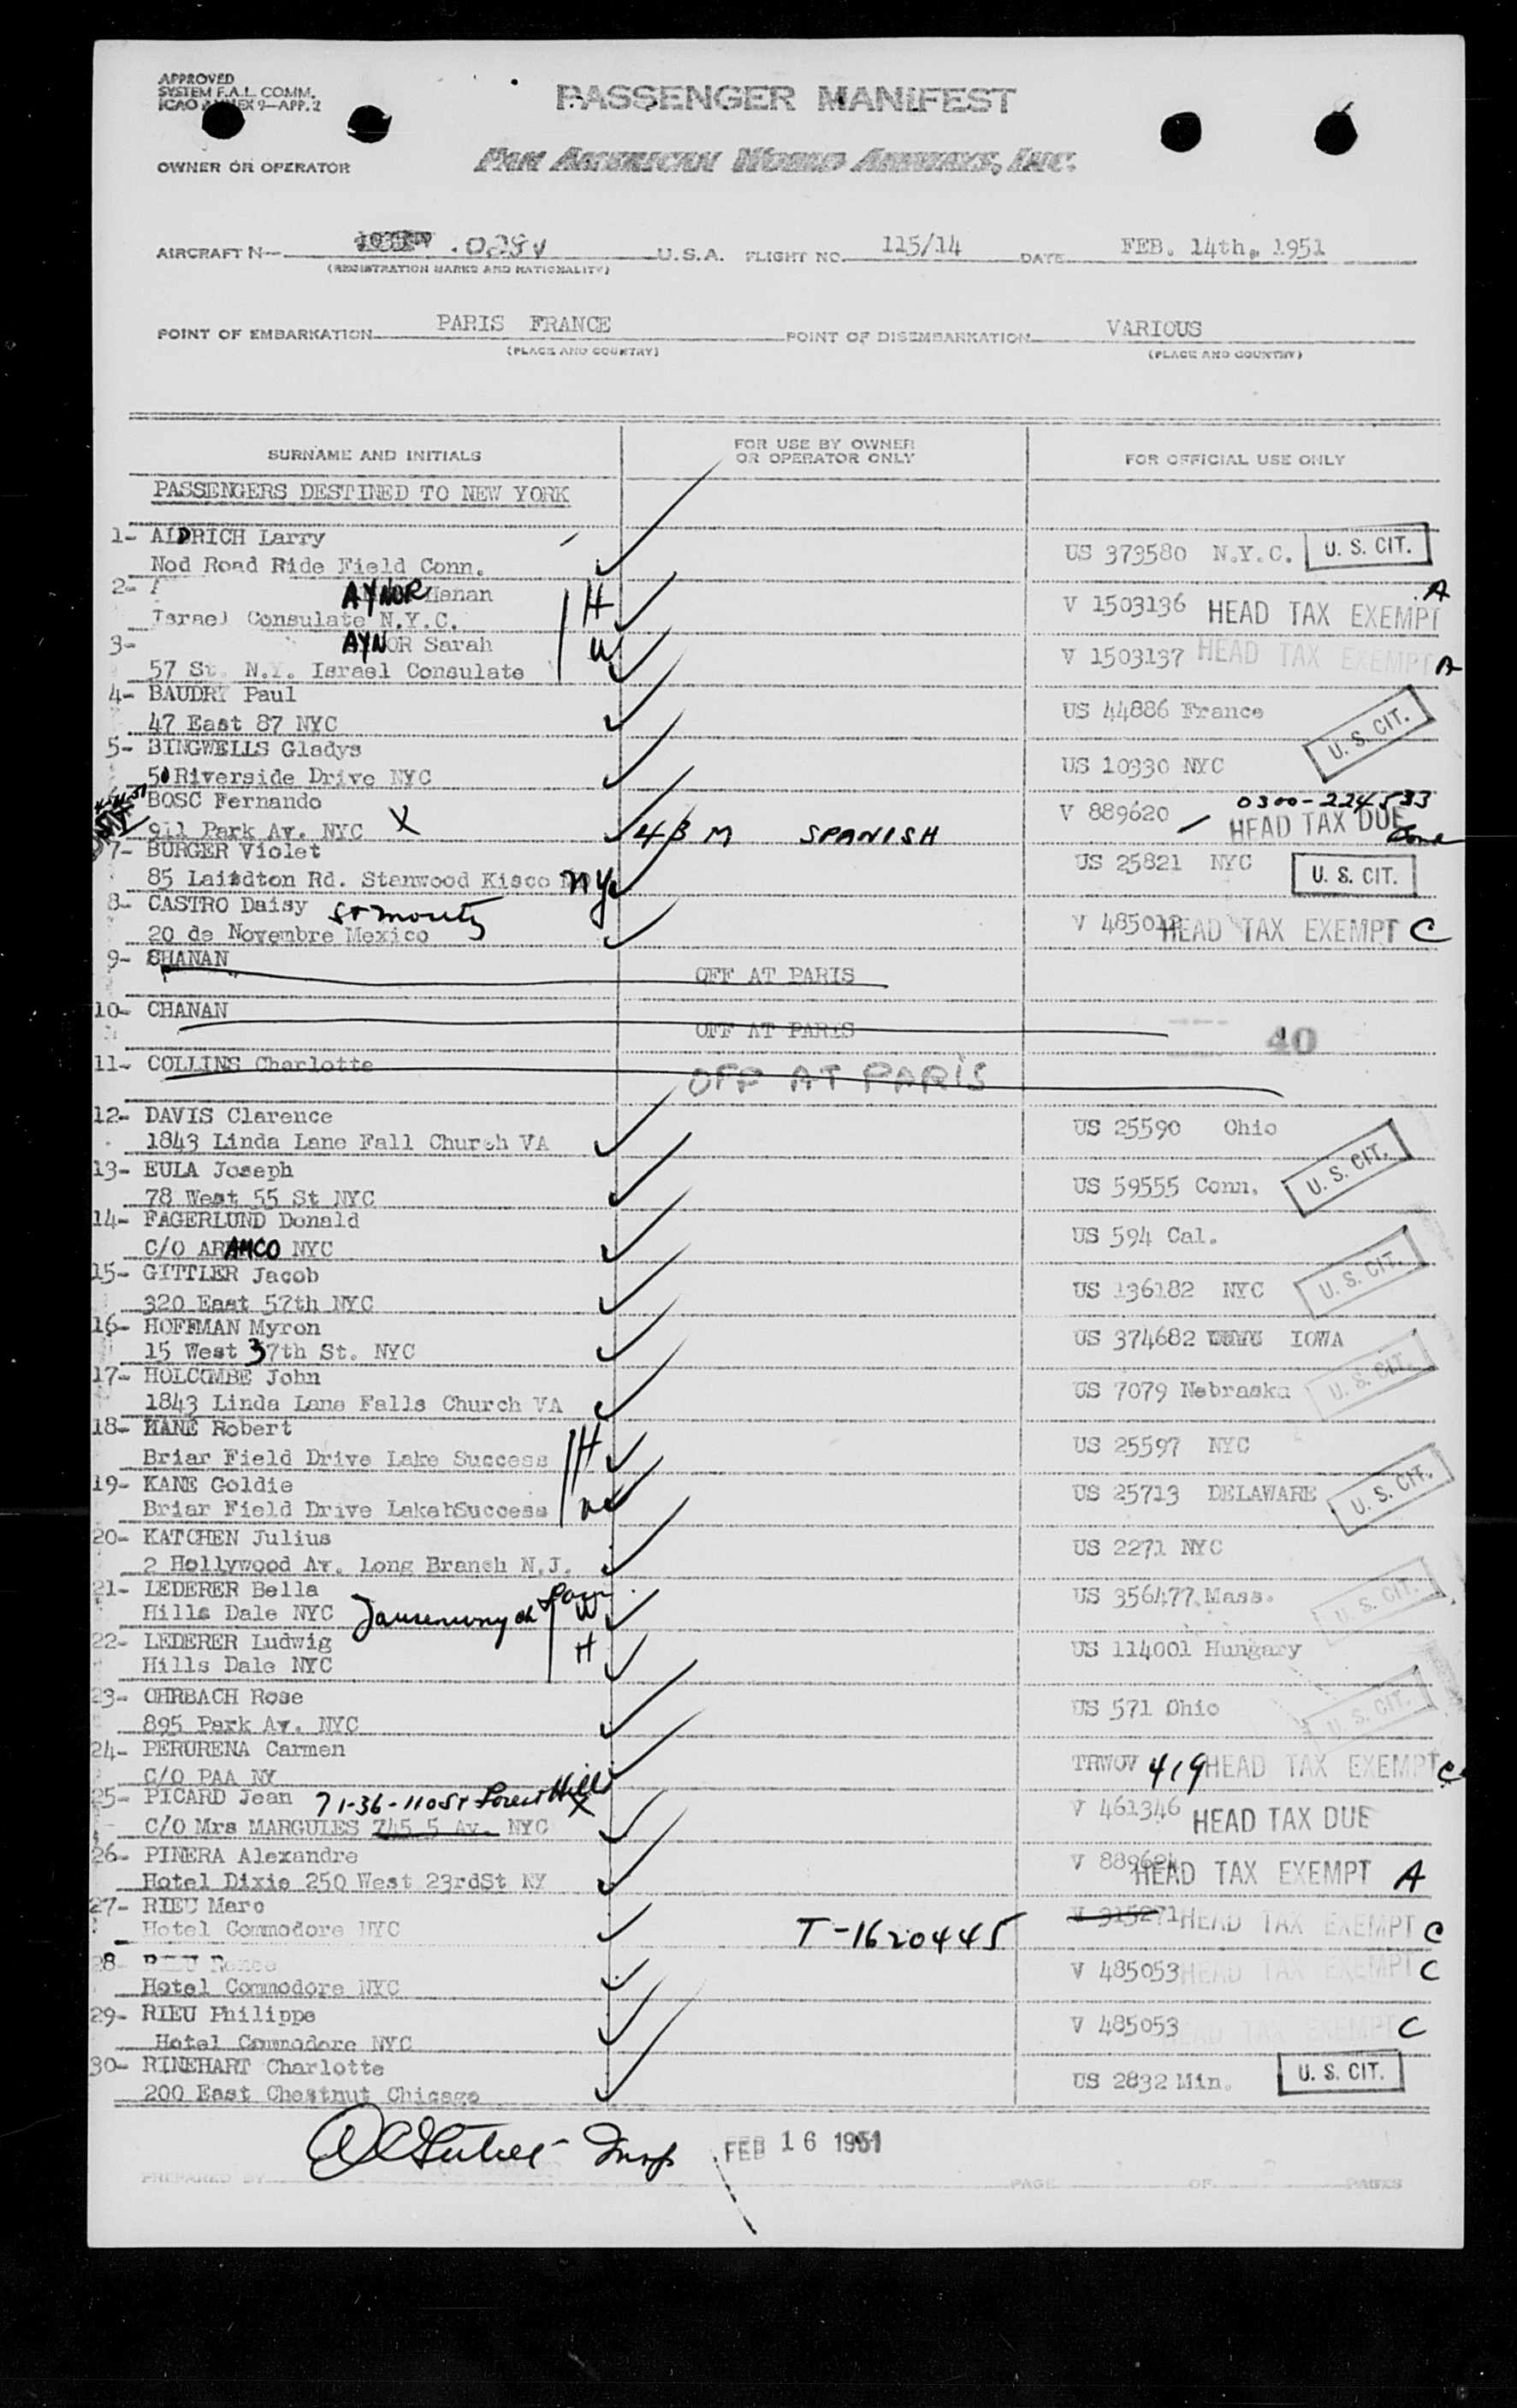 APPROVED
SYSTEM F.A.L. COMM.
ICAO ANNEX 9—APP. 2
PASSENGER MANIFEST
OWNER OR OPERATOR PAN AMERICAN WORLD AIRWAYS, INC.
AIRCRAFT N— U.S.A. FLIGHT NO. 115/14 DATE FEB. 14th, 1951
(REGISTRATION MARKS AND NATIONALITY)
POINT OF EMBARKATION PARIS FRANCE POINT OF DISEMBARKATION VARIOUS
(PLACE AND COUNTRY) (PLACE AND COUNTRY)
SURNAME AND INITIALS FOR USE BY OWNER OR OPERATOR ONLY FOR OFFICIAL USE ONLY
PASSENGERS DESTINED TO NEW YORK
1- ALDRICH Larry
Nod Road Ride Field Conn. US 373580 N.Y.C. U. S. CIT.
2- AYNOR Hanan H A
Israel Consulate N.Y.C. V 1503136 HEAD TAX EXEMPT
3- AYNOR Sarah W
57 St. N.Y. Israel Consulate V 1503137 HEAD TAX EXEMPT A
4- BAUDRY Paul
47 East 87 NYC US 44886 France U. S. CIT.
5- BINGWELLS Gladys
50 Riverside Drive NYC US 10330 NYC
BOSC Fernando V 889620 0300-224533
911 Park Av. NYC X 43 M SPANISH HEAD TAX DUE
7- BURGER Violet
85 Laisdton Rd. Stanwood Kisco NY US 25821 NYC U. S. CIT.
8- CASTRO Daisy St Moritz
20 de Novembre Mexico HEAD TAX EXEMPT C
9- CHANAN
OFF AT PARIS
10- CHANAN
OFF AT PARIS 40
11- COLLINS Charlotte
OFF AT PARIS
12- DAVIS Clarence
1843 Linda Lane Fall Church VA US 25590 Ohio
13- EULA Joseph
78 West 55 St NYC US 59555 Conn. U. S. CIT.
14- FAGERLUND Donald
C/O ARAMCO NYC US 594 Cal.
15- GITTLER Jacob
320 East 57th NYC US 136182 NYC U. S. CIT.
16- HOFFMAN Myron
15 West 37th St. NYC US 374682 IOWA
17- HOLCOMBE John
1843 Linda Lane Falls Church VA US 7079 Nebraska U. S. CIT.
18- KANE Robert H
Briar Field Drive Lake Success US 25597 NYC
19- KANE Goldie W
Briar Field Drive LakehSuccess US 25713 DELAWARE U. S. CIT.
20- KATCHEN Julius
2 Hollywood Av. Long Branch N.J. US 2271 NYC
21- LEDERER Bella W
Hills Dale NYC US 356477 Mass. U. S. CIT.
22- LEDERER Ludwig H
Hills Dale NYC US 114001 Hungary
23- OHRBACH Rose
895 Park Av. NYC US 571 Ohio U. S. CIT.
24- PERURENA Carmen
C/O PAA NY TRWOV 419 HEAD TAX EXEMPT C
25- PICARD Jean 71-36-110 St Forest Hills X
C/O Mrs MARGULES 745 5 Av. NYC V 461346 HEAD TAX DUE
26- PINERA Alexandre
Hotel Dixie 250 West 23rdSt NY HEAD TAX EXEMPT A
27- RIEU Marc
Hotel Commodore NYC T-1620445 V 315271 HEAD TAX EXEMPT C
28-
Hotel Commodore NYC V 485053 HEAD TAX EXEMPT C
29- RIEU Philippe
Hotel Commodore NYC V 485053 HEAD TAX EXEMPT C
30- RINEHART Charlotte
200 East Chestnut Chicago US 2832 Min. U. S. CIT.
FEB 16 1951
PREPARED BY PAGE OF PAGES